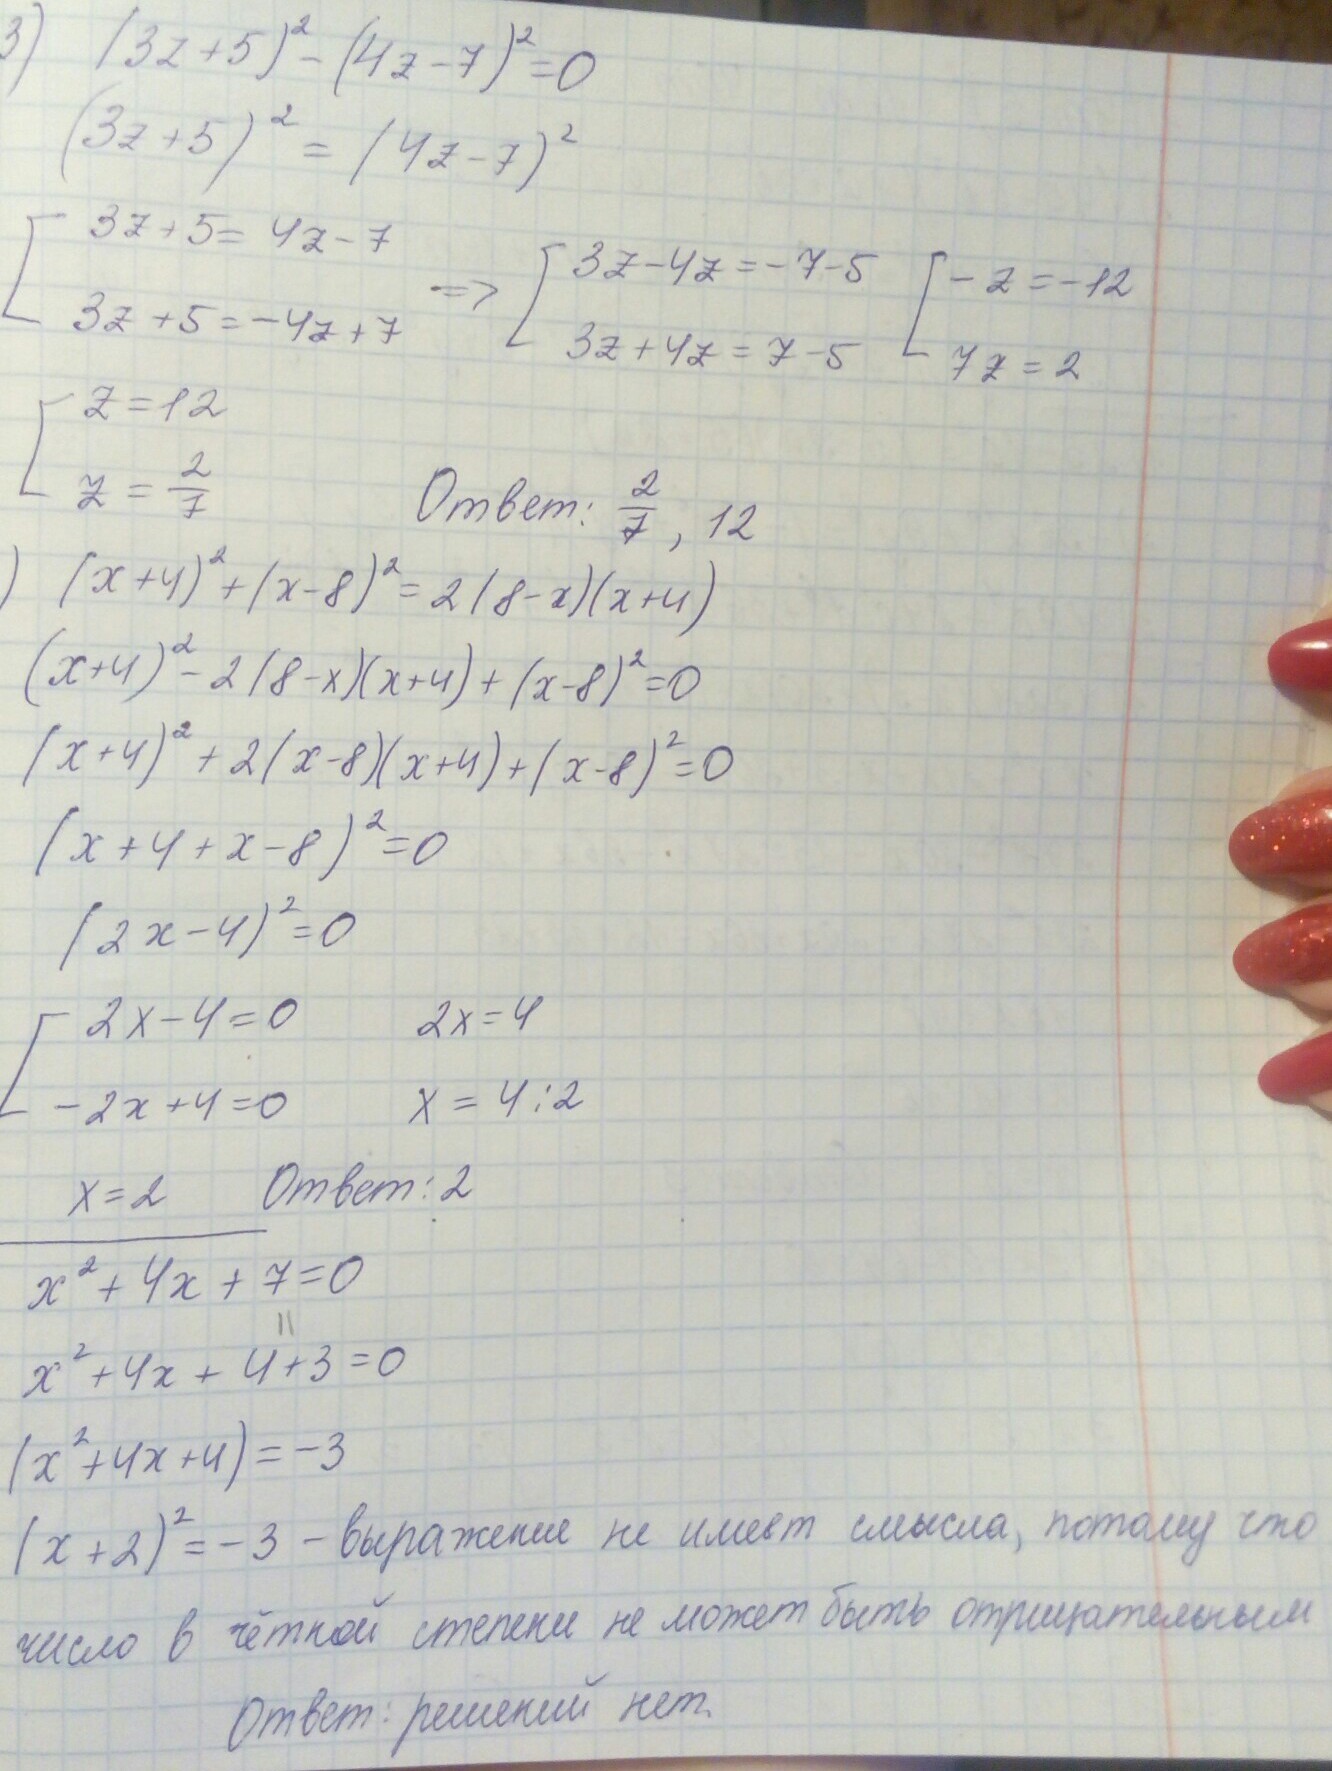 3) (3z+5)²-(4z-7)²=0
(3z+5)² = (4z-7)²
[ 3z+5=4z-7
3z+5=-4z+7
=> [ 3z-4z=-7-5
3z+4z=7-5
[ -z=-12
7z=2
[ z=12
z=2/7
Ответ: 2/7, 12
) (x+4)²+(x-8)²=2(8-x)(x+4)
(x+4)²-2(8-x)(x+4)+(x-8)²=0
(x+4)²+2(x-8)(x+4)+(x-8)²=0
(x+4+x-8)²=0
(2x-4)²=0
[ 2x-4=0 2x=4
-2x+4=0 x=4:2
x=2 Ответ: 2
x²+4x+7=0
=
x²+4x+4+3=0
(x²+4x+4)=-3
(x+2)²=-3 - выражение не имеет смысла, потому что
число в чётной степени не может быть отрицательным
Ответ: решений нет.